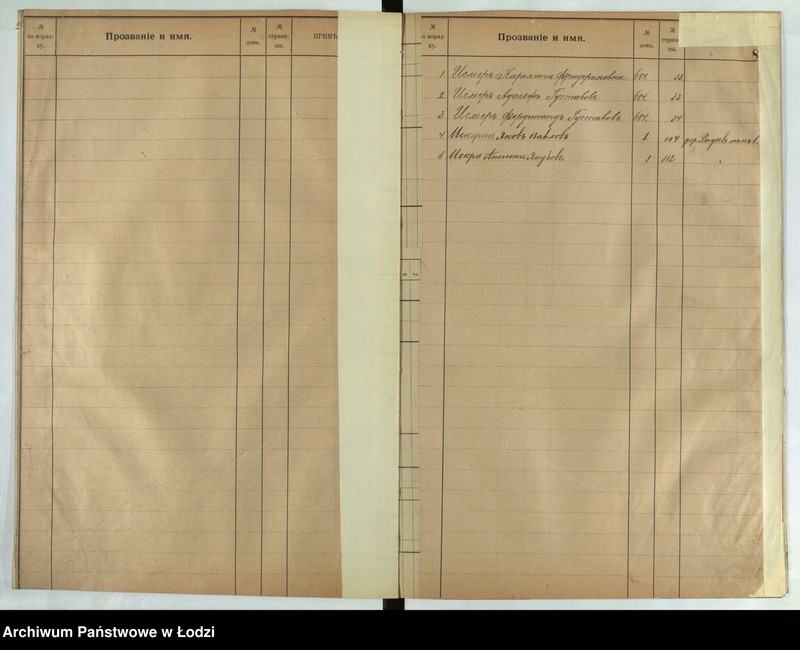 № по порядку.
Прозваніе и имя.
№ дома.
№ страницы.
ПРИМѢ
№ по порядку.
Прозваніе и имя.
№ дома.
№ страницы.
8
1. Исмеръ Каролина Фридриховна 684. 33
2 Исмеръ Адольфъ Густавовъ 684. 33
3 Исмеръ Фердинандъ Густавовъ 684. 34
4 Яковъ Павловъ 1. 104 дер.
5 Искра Антонъ Якубовъ 1 112 "
Archiwum Państwowe w Łodzi